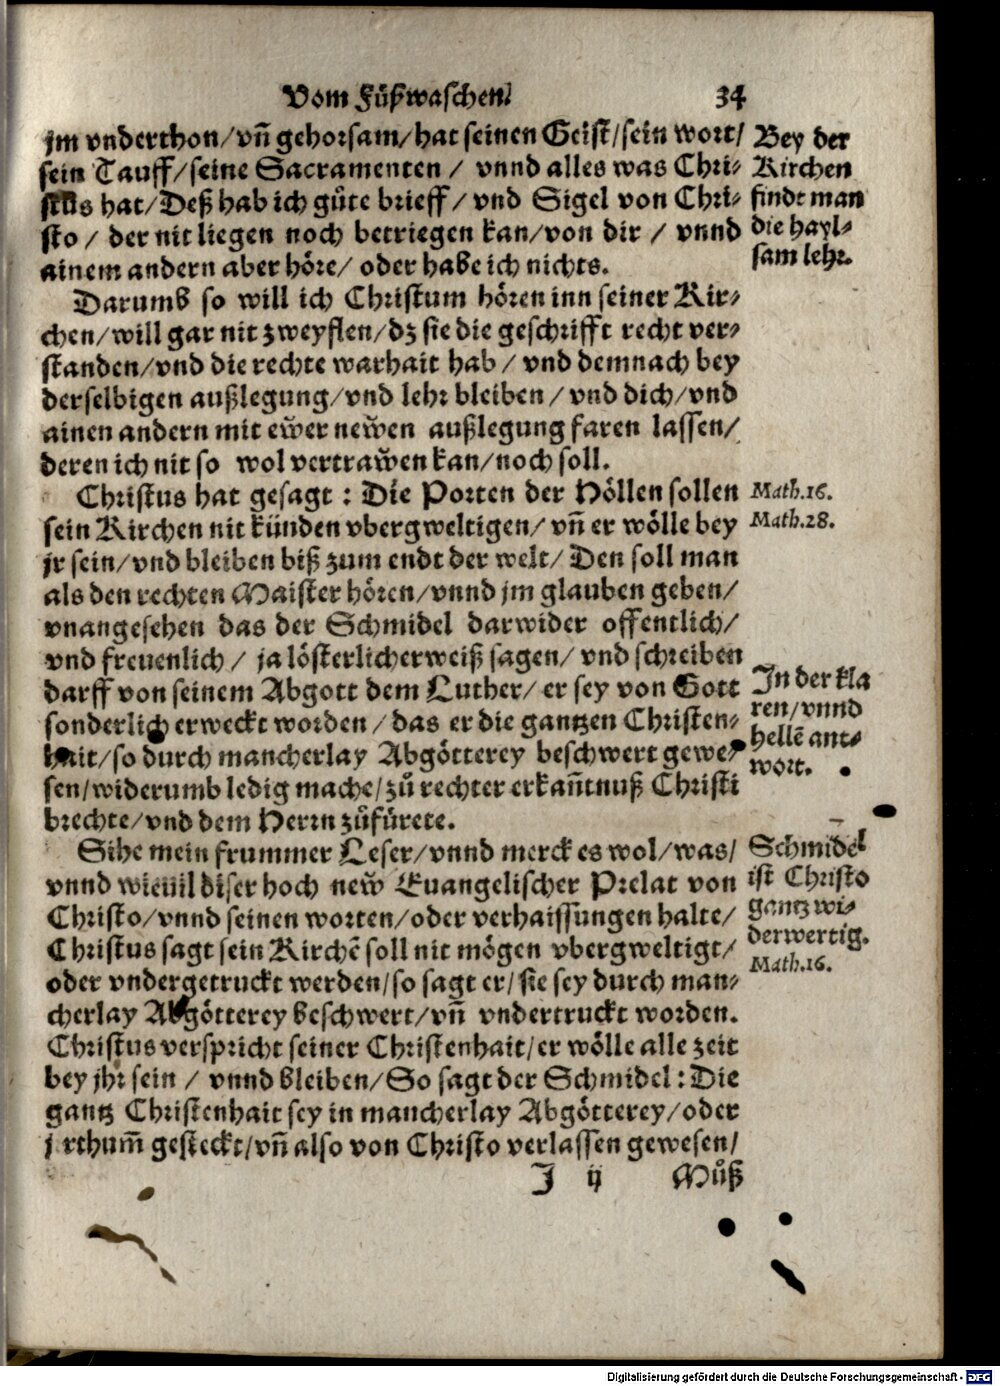 Vom Fuͦßwaschen. 34
jm vnderthon/vñ gehorsam/hat seinen Geist/sein wort/
sein Tauff/seine Sacramenten / vnnd alles was Chri-
stus hat/Deß hab ich guͦte brieff/vnd Sigel von Chri-
sto / der nit liegen noch betriegen kan/von dir / vnnd
ainem andern aber höre/ oder habe ich nichts.
Bey der
Kirchen
findt man
die hayl-
sam lehr.
Darumb so will ich Christum hören inn seiner Kir-
chen/will gar nit zweyflen/dz sie die geschrifft recht ver-
standen/vnd die rechte warhait hab / vnd demnach bey
derselbigen außlegung/vnd lehr bleiben / vnd dich/vnd
ainen andern mit ewer newen außlegung faren lassen/
deren ich nit so wol vertrawen kan/noch soll.
Christus hat gesagt : Die Porten der Höllen sollen
sein Kirchen nit künden vbergweltigen/ vñ er wölle bey
jr sein/vnd bleiben biß zum endt der welt/ Den soll man
als den rechten Maister hören/vnnd jm glauben geben/
vnangesehen das der Schmidel darwider offentlich/
vnd freuenlich / ja lösterlicherweiß sagen/ vnd schreiben
darff von seinem Abgott dem Luther/ er sey von Gott
sonderlich erweckt worden / das er die gantzen Christen-
hait/so durch mancherlay Abgötterey beschwert gewe-
sen/widerumb ledig mache/zuͦ rechter erkañtnuß Christi
brechte/vnd dem Herrn zuͦfürete.
Math.16.
Math.28.
In der kla
ren/vnnd
hellẽ ant-
wort.
Sihe mein frummer Leser/vnnd merck es wol/was/
vnnd wieuil diser hoch new Euangelischer Prelat von
Christo/vnnd seinen worten/oder verhaissungen halte/
Christus sagt sein Kirchẽ soll nit mögen vbergweltigt/
oder vndergetruckt werden/so sagt er/sie sey durch man-
cherlay Abgötterey beschwert/vñ vndertruckt worden.
Christus verspricht seiner Christenhait/er wölle alle zeit
bey jhr sein / vnnd bleiben/So sagt der Schmidel : Die
gantz Christenhait sey in mancherlay Abgötterey/oder
jrthum̃ gesteckt/vñ also von Christo verlassen gewesen/
Schmidel
ist Christo
gantz wi-
derwertig.
Math.16.
J ij Muͦß
Digitalisierung gefördert durch die Deutsche Forschungsgemeinschaft - DFG